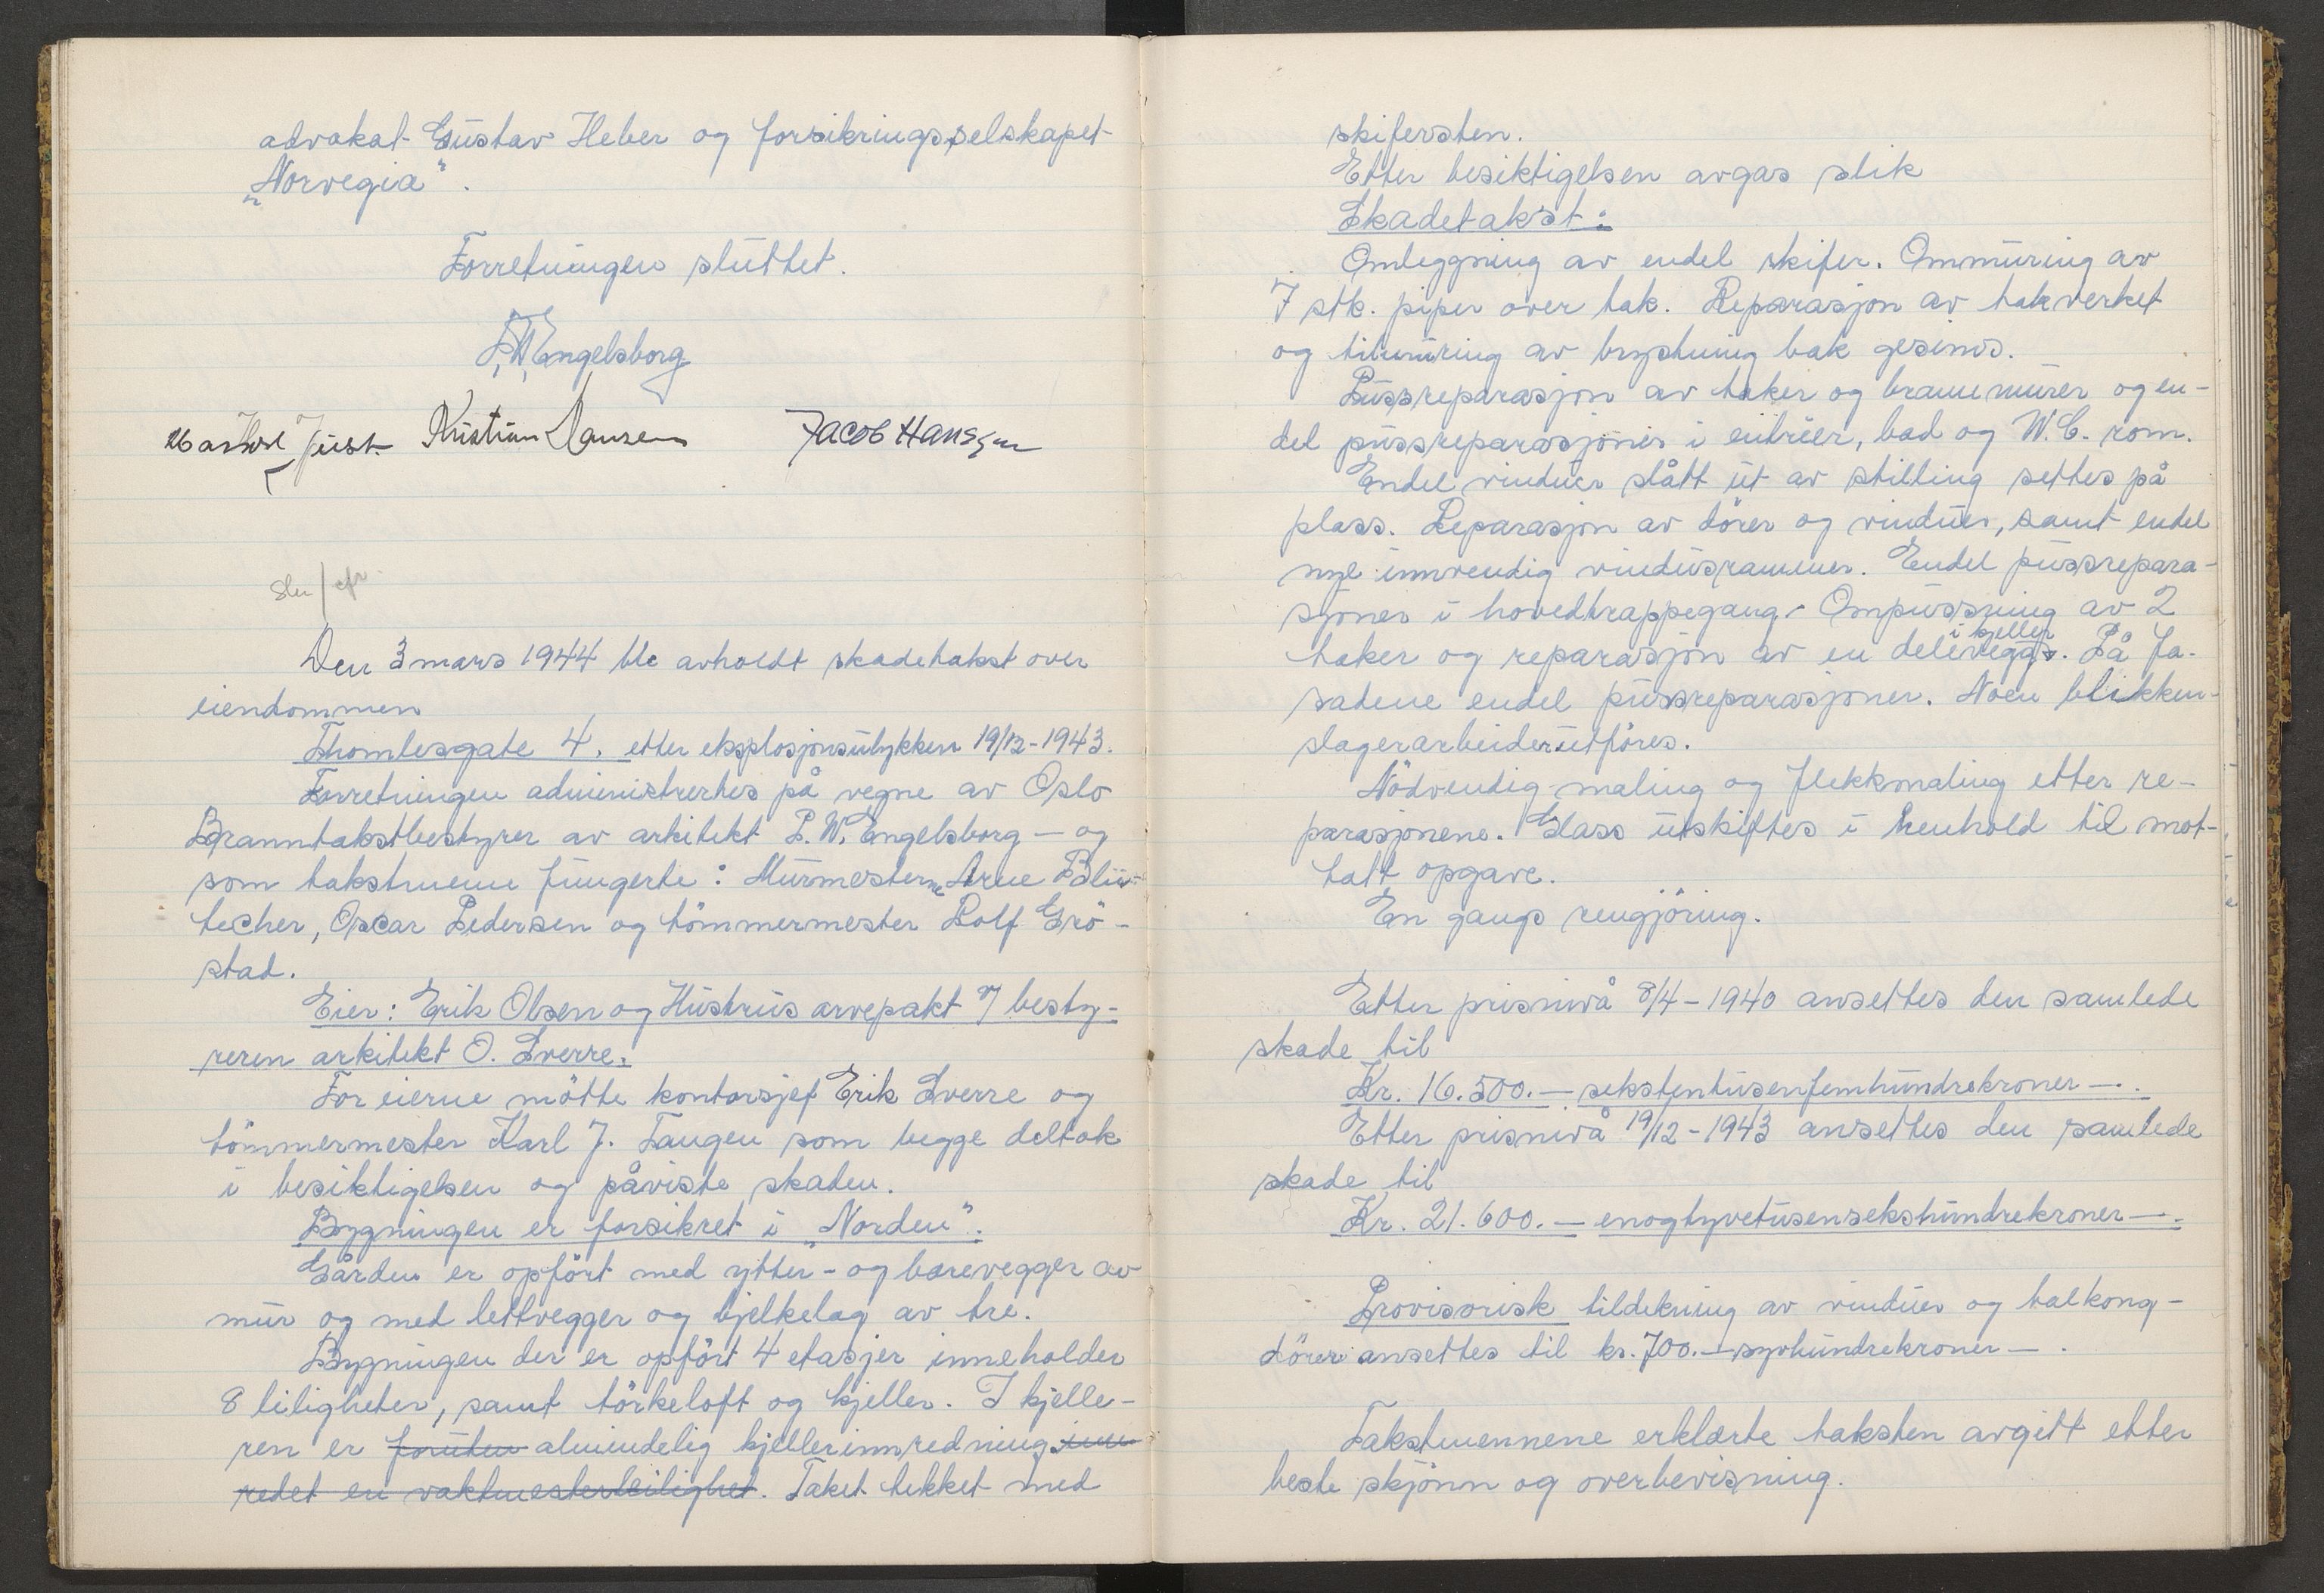 advokat Gustav Heber og forsikringsselskapet
"Norvegia".
Forretningen sluttet.
P.W. Engelsborg
Just. Kristian Hansen Jacob Hanssen
Den 3 mars 1944 ble avholdt skadetakst over
eiendommen
Thomlesgate 4. etter eksplosjonsulykken 19/12-1943.
Forretningen administrertes på vegne av Oslo
Branntakstbestyrer av arkitekt P.W. Engelsborg — og
som takstmenn fungerte: Murmesterne Arne Blüt-
techer, Oscar Pedersen og tömmermester Rolf Grö-
stad.
Eier: Erik Olsen og Hustrus arvepakt v/ besty-
reren arkitekt O. Sverre.
For eierne mötte kontorsjef Erik Sverre og
tömmermester Karl J. Tangen som begge deltok
i besiktigelsen og påviste skaden.
Bygningen er forsikret i "Norden".
Gården er opfört med ytter- og bærevegger av
mur og med lettvegger og bjelkelag av tre.
Bygningen der er opfört 4 etasjer inneholder
8 liligheter, samt törkeloft og kjeller. I kjelle-
ren er foruten almindelig kjellerinnredning inn
redet en vaktmesterleilighet. Taket tekket med
skifersten.
Etter besiktigelsen avgas slik
Skadetakst:
Omleggning av endel skifer. Ommuring av
7 stk. piper over tak. Reparasjon av takverket
og tilmuring av brystning bak gesims.
Pussreparasjon av taker og brannmurer og en-
del pussreparasjoner i entréer, bad og W.C. rom.
Endel vinduer slått ut av stilling settes på
plass. Reparasjon av dörer og vinduer, samt endel
nye innvendig vindusrammer. Endel pussrepara-
sjoner i hovedtrappegang. Ompussning av 2
taker og reparasjon av en delevegg i kjeller. På fa-
sadene endel pussreparasjoner. Noen blikken-
slagerarbeider utföres.
Nödvendig maling og flekkmaling etter re-
parasjonene. Glass utskiftes i henhold til mot-
tatt opgave.
En gangs rengjöring.
Etter prisnivå 8/4-1940 ansettes den samlede
skade til
Kr. 16.500.— sekstentusenfemhundrekroner—.
Etter prisnivå 19/12-1943 ansettes den samlede
skade til
Kr. 21.600.— enogtyvetusensekshundrekroner—.
Provisorisk tildekning av vinduer og balkong-
dörer ansettes til kr. 700.— syvhundrekroner—.
Takstmennene erklærte taksten avgitt etter
beste skjönn og overbevisning.